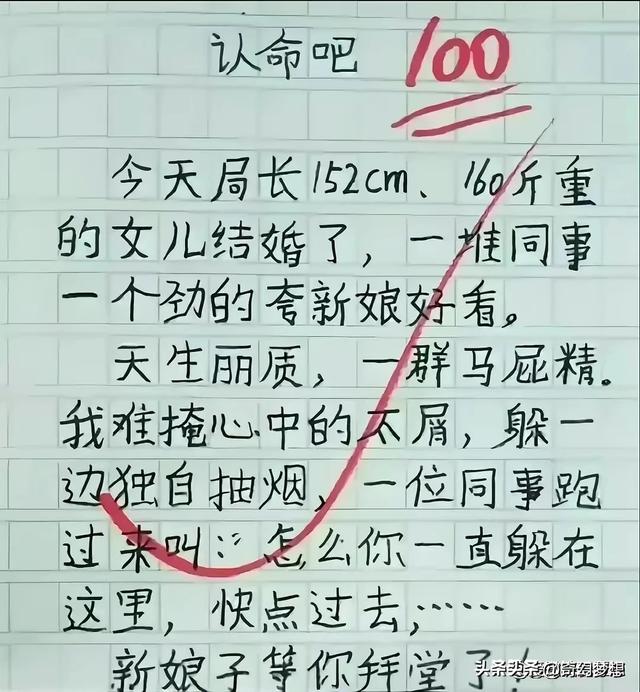 认命吧 100
今天局长152cm、160斤重
的女儿结婚了，一堆同事
一个劲的夸新娘好看。
天生丽质，一群马屁精。
我难掩心中的不屑，躲一
边独自抽烟，一位同事跑
过来叫：怎么你一直躲在
这里，快点过去，……
新娘子等你拜堂了！
头条头条@奇幻梦想